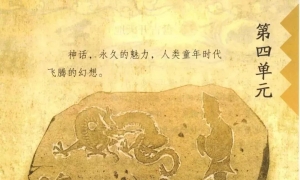 第四单元
神话，永久的魅力，人类童年时代
飞腾的幻想。